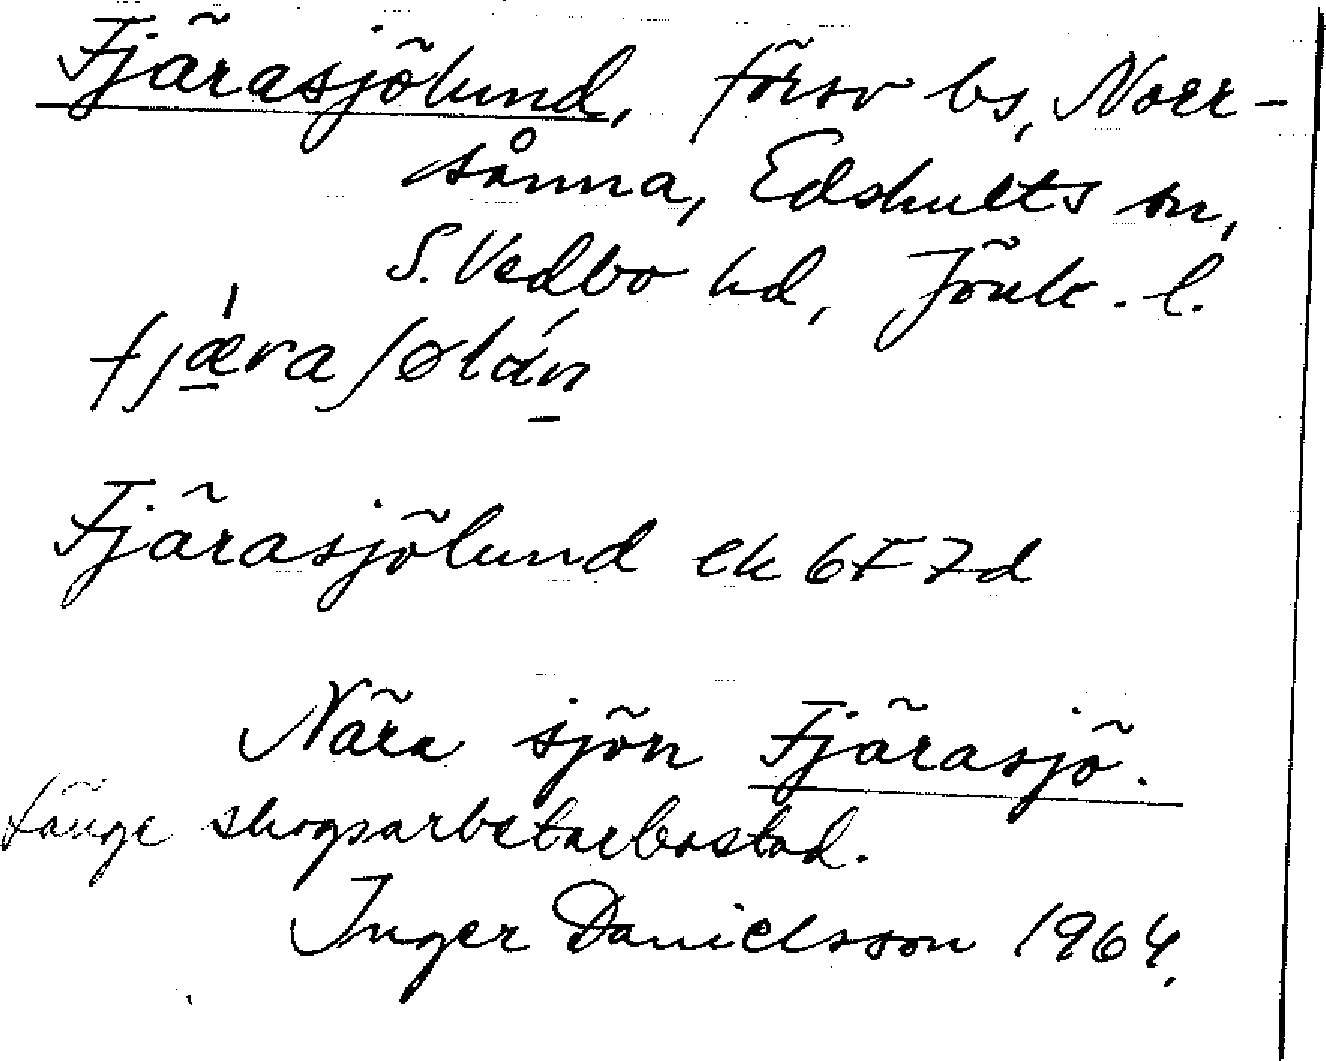 Fjärasjölund, försv bs, Norr-
sånna, Edshults sn,
S. Vedbo hd, Jönk. l.
fjǽ̲ra ʃølán̲
Fjärasjölund ek 6F7d
Nära sjön Fjärasjö.
Länge skogsarbetarbostad.
Inger Danielsson 1964.